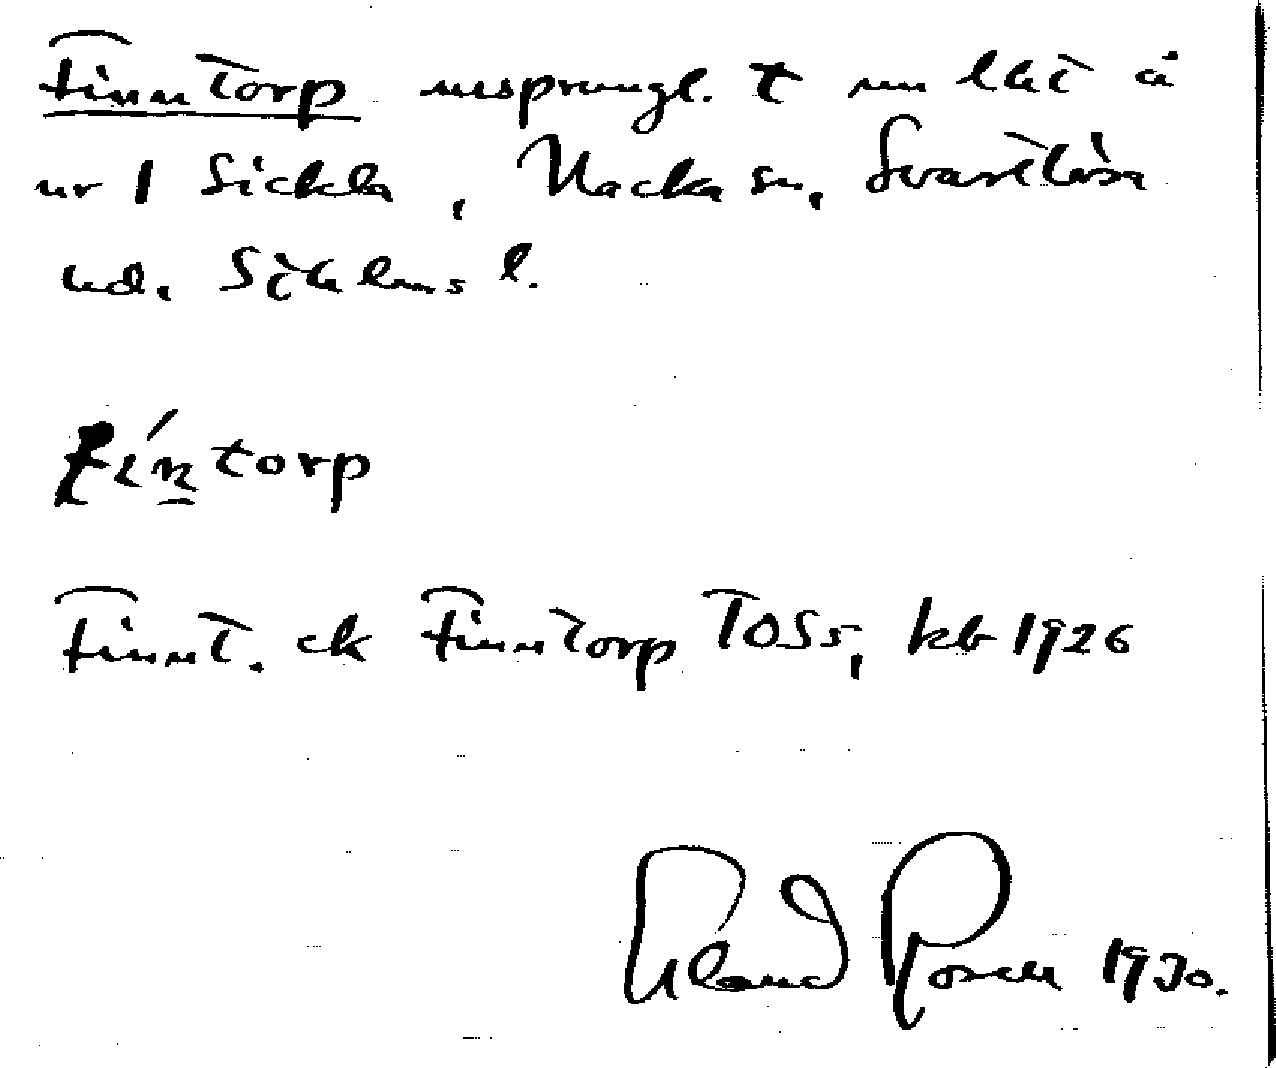 Finntorp ursprungl. t nu lht å
nr 1 Sickla, Nacka sn, Svartlösa
hd. Sthlms l.
Fíntorp
Finnt. ek Finntorp TOSs, kb 1926
Erland Rosell 1930.